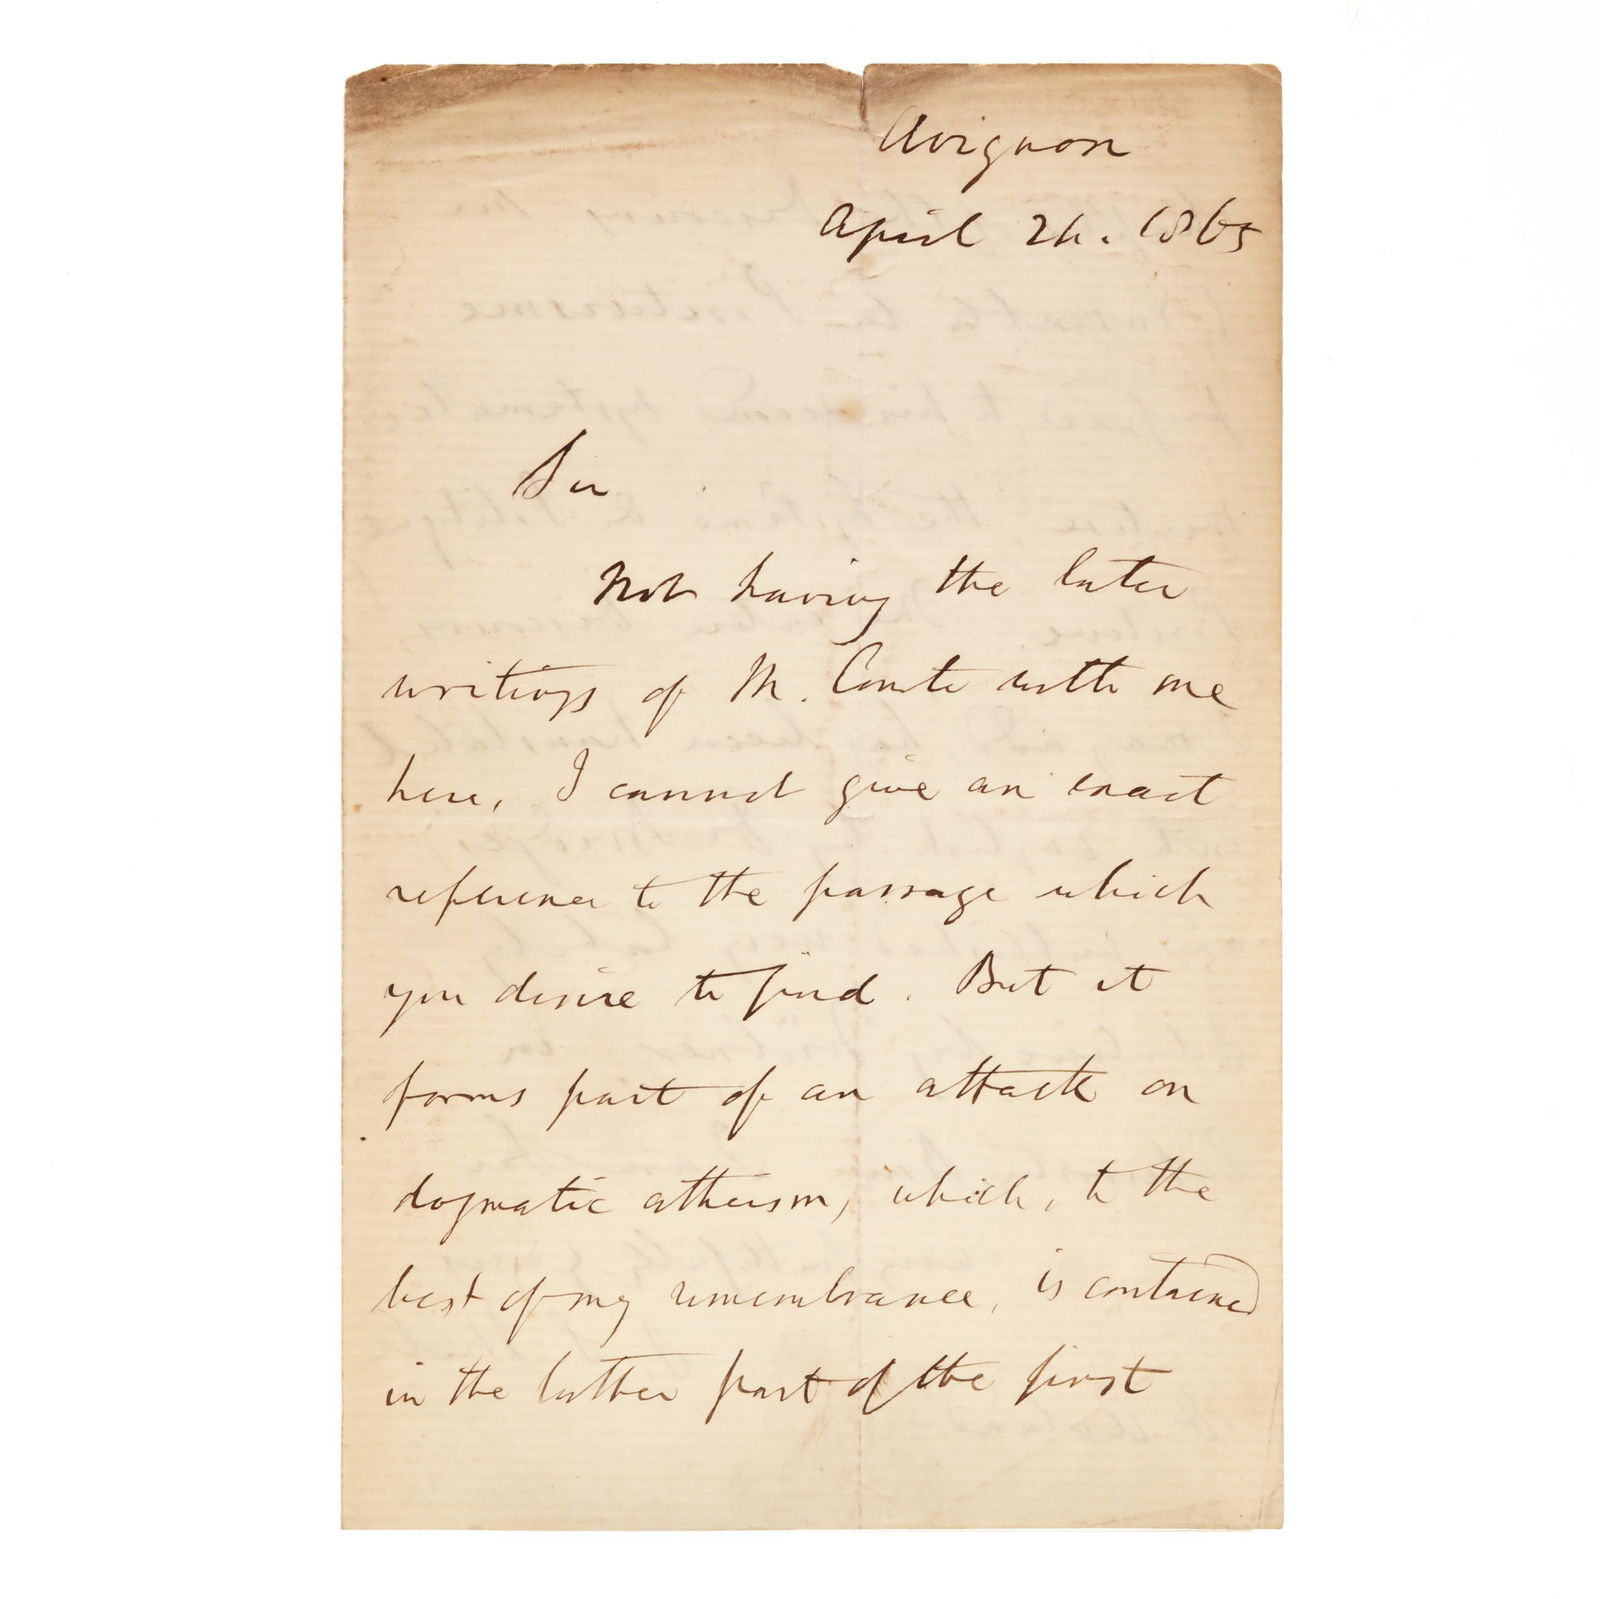 Avignon
April 24. 1865
Sir
Not having the later
writings of M. Comte with me
here, I cannot give an exact
reference to the passage which
you desire to find. But it
forms part of an attack on
dogmatic atheism, which, to the
best of my remembrance, is contained
in the latter part of the first